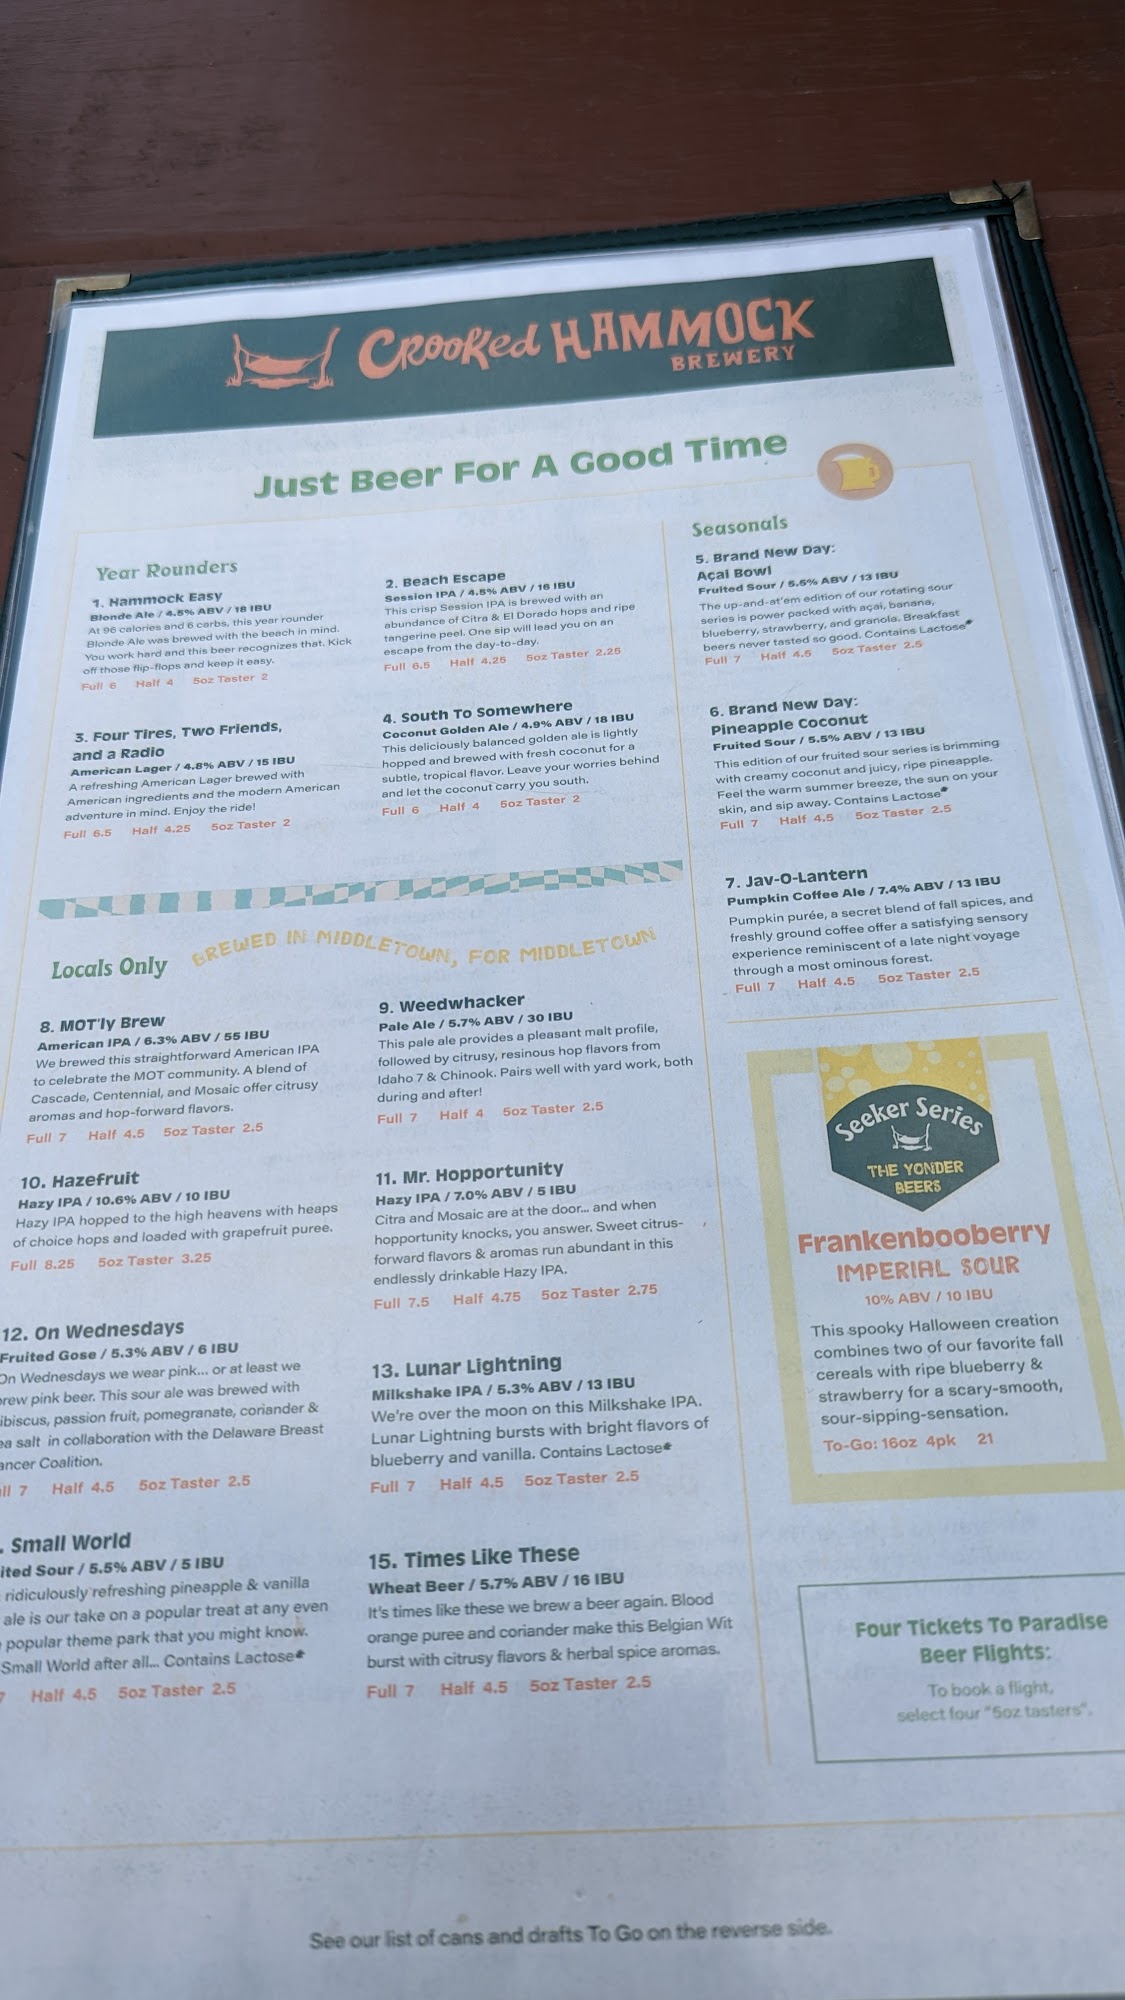 Crooked HAMMOCK
BREWERY
Just Beer For A Good Time
Year Rounders
1. Hammock Easy
Blonde Ale / 4.5% ABV / 18 IBU
At 96 calories and 6 carbs, this year rounder
Blonde Ale was brewed with the beach in mind.
You work hard and this beer recognizes that. Kick
off those flip-flops and keep it easy.
Full 6 Half 4 5oz Taster 2
2. Beach Escape
Session IPA / 4.5% ABV / 16 IBU
This crisp Session IPA is brewed with an
abundance of Citra & El Dorado hops and ripe
tangerine peel. One sip will lead you on an
escape from the day-to-day.
Full 6.5 Half 4.25 5oz Taster 2.25
3. Four Tires, Two Friends,
and a Radio
American Lager / 4.8% ABV / 15 IBU
A refreshing American Lager brewed with
American ingredients and the modern American
adventure in mind. Enjoy the ride!
Full 6.5 Half 4.25 5oz Taster 2
4. South To Somewhere
Coconut Golden Ale / 4.9% ABV / 18 IBU
This deliciously balanced golden ale is lightly
hopped and brewed with fresh coconut for a
subtle, tropical flavor. Leave your worries behind
and let the coconut carry you south.
Full 6 Half 4 5oz Taster 2
Seasonals
5. Brand New Day:
Açai Bowl
Fruited Sour / 5.5% ABV / 13 IBU
The up-and-at'em edition of our rotating sour
series is power packed with açai, banana,
blueberry, strawberry, and granola. Breakfast
beers never tasted so good. Contains Lactose*
Full 7 Half 4.5 5oz Taster 2.5
6. Brand New Day:
Pineapple Coconut
Fruited Sour / 5.5% ABV / 13 IBU
This edition of our fruited sour series is brimming
with creamy coconut and juicy, ripe pineapple.
Feel the warm summer breeze, the sun on your
skin, and sip away. Contains Lactose*
Full 7 Half 4.5 5oz Taster 2.5
7. Jav-O-Lantern
Pumpkin Coffee Ale / 7.4% ABV / 13 IBU
Pumpkin purée, a secret blend of fall spices, and
freshly ground coffee offer a satisfying sensory
experience reminiscent of a late night voyage
through a most ominous forest.
Full 7 Half 4.5 5oz Taster 2.5
Locals Only
BREWED IN MIDDLETOWN, FOR MIDDLETOWN
8. MOT'ly Brew
American IPA / 6.3% ABV / 55 IBU
We brewed this straightforward American IPA
to celebrate the MOT community. A blend of
Cascade, Centennial, and Mosaic offer citrusy
aromas and hop-forward flavors.
Full 7 Half 4.5 5oz Taster 2.5
9. Weedwhacker
Pale Ale / 5.7% ABV / 30 IBU
This pale ale provides a pleasant malt profile,
followed by citrusy, resinous hop flavors from
Idaho 7 & Chinook. Pairs well with yard work, both
during and after!
Full 7 Half 4 5oz Taster 2.5
10. Hazefruit
Hazy IPA / 10.6% ABV / 10 IBU
Hazy IPA hopped to the high heavens with heaps
of choice hops and loaded with grapefruit puree.
Full 8.25 5oz Taster 3.25
11. Mr. Hopportunity
Hazy IPA / 7.0% ABV / 5 IBU
Citra and Mosaic are at the door... and when
hopportunity knocks, you answer. Sweet citrus-
forward flavors & aromas run abundant in this
endlessly drinkable Hazy IPA.
Full 7.5 Half 4.75 5oz Taster 2.75
12. On Wednesdays
Fruited Gose / 5.3% ABV / 6 IBU
On Wednesdays we wear pink... or at least we
rew pink beer. This sour ale was brewed with
ibiscus, passion fruit, pomegranate, coriander &
ea salt in collaboration with the Delaware Breast
ancer Coalition.
ll 7 Half 4.5 5oz Taster 2.5
13. Lunar Lightning
Milkshake IPA / 5.3% ABV / 13 IBU
We're over the moon on this Milkshake IPA.
Lunar Lightning bursts with bright flavors of
blueberry and vanilla. Contains Lactose*
Full 7 Half 4.5 5oz Taster 2.5
. Small World
ited Sour / 5.5% ABV / 5 IBU
ridiculously refreshing pineapple & vanilla
ale is our take on a popular treat at any even
popular theme park that you might know.
Small World after all... Contains Lactose*
7 Half 4.5 5oz Taster 2.5
15. Times Like These
Wheat Beer / 5.7% ABV / 16 IBU
It's times like these we brew a beer again. Blood
orange puree and coriander make this Belgian Wit
burst with citrusy flavors & herbal spice aromas.
Full 7 Half 4.5 5oz Taster 2.5
Seeker Series
THE YONDER
BEERS
Frankenbooberry
IMPERIAL SOUR
10% ABV / 10 IBU
This spooky Halloween creation
combines two of our favorite fall
cereals with ripe blueberry &
strawberry for a scary-smooth,
sour-sipping-sensation.
To-Go: 16oz 4pk 21
Four Tickets To Paradise
Beer Flights:
To book a flight,
select four "5oz tasters".
See our list of cans and drafts To Go on the reverse side.